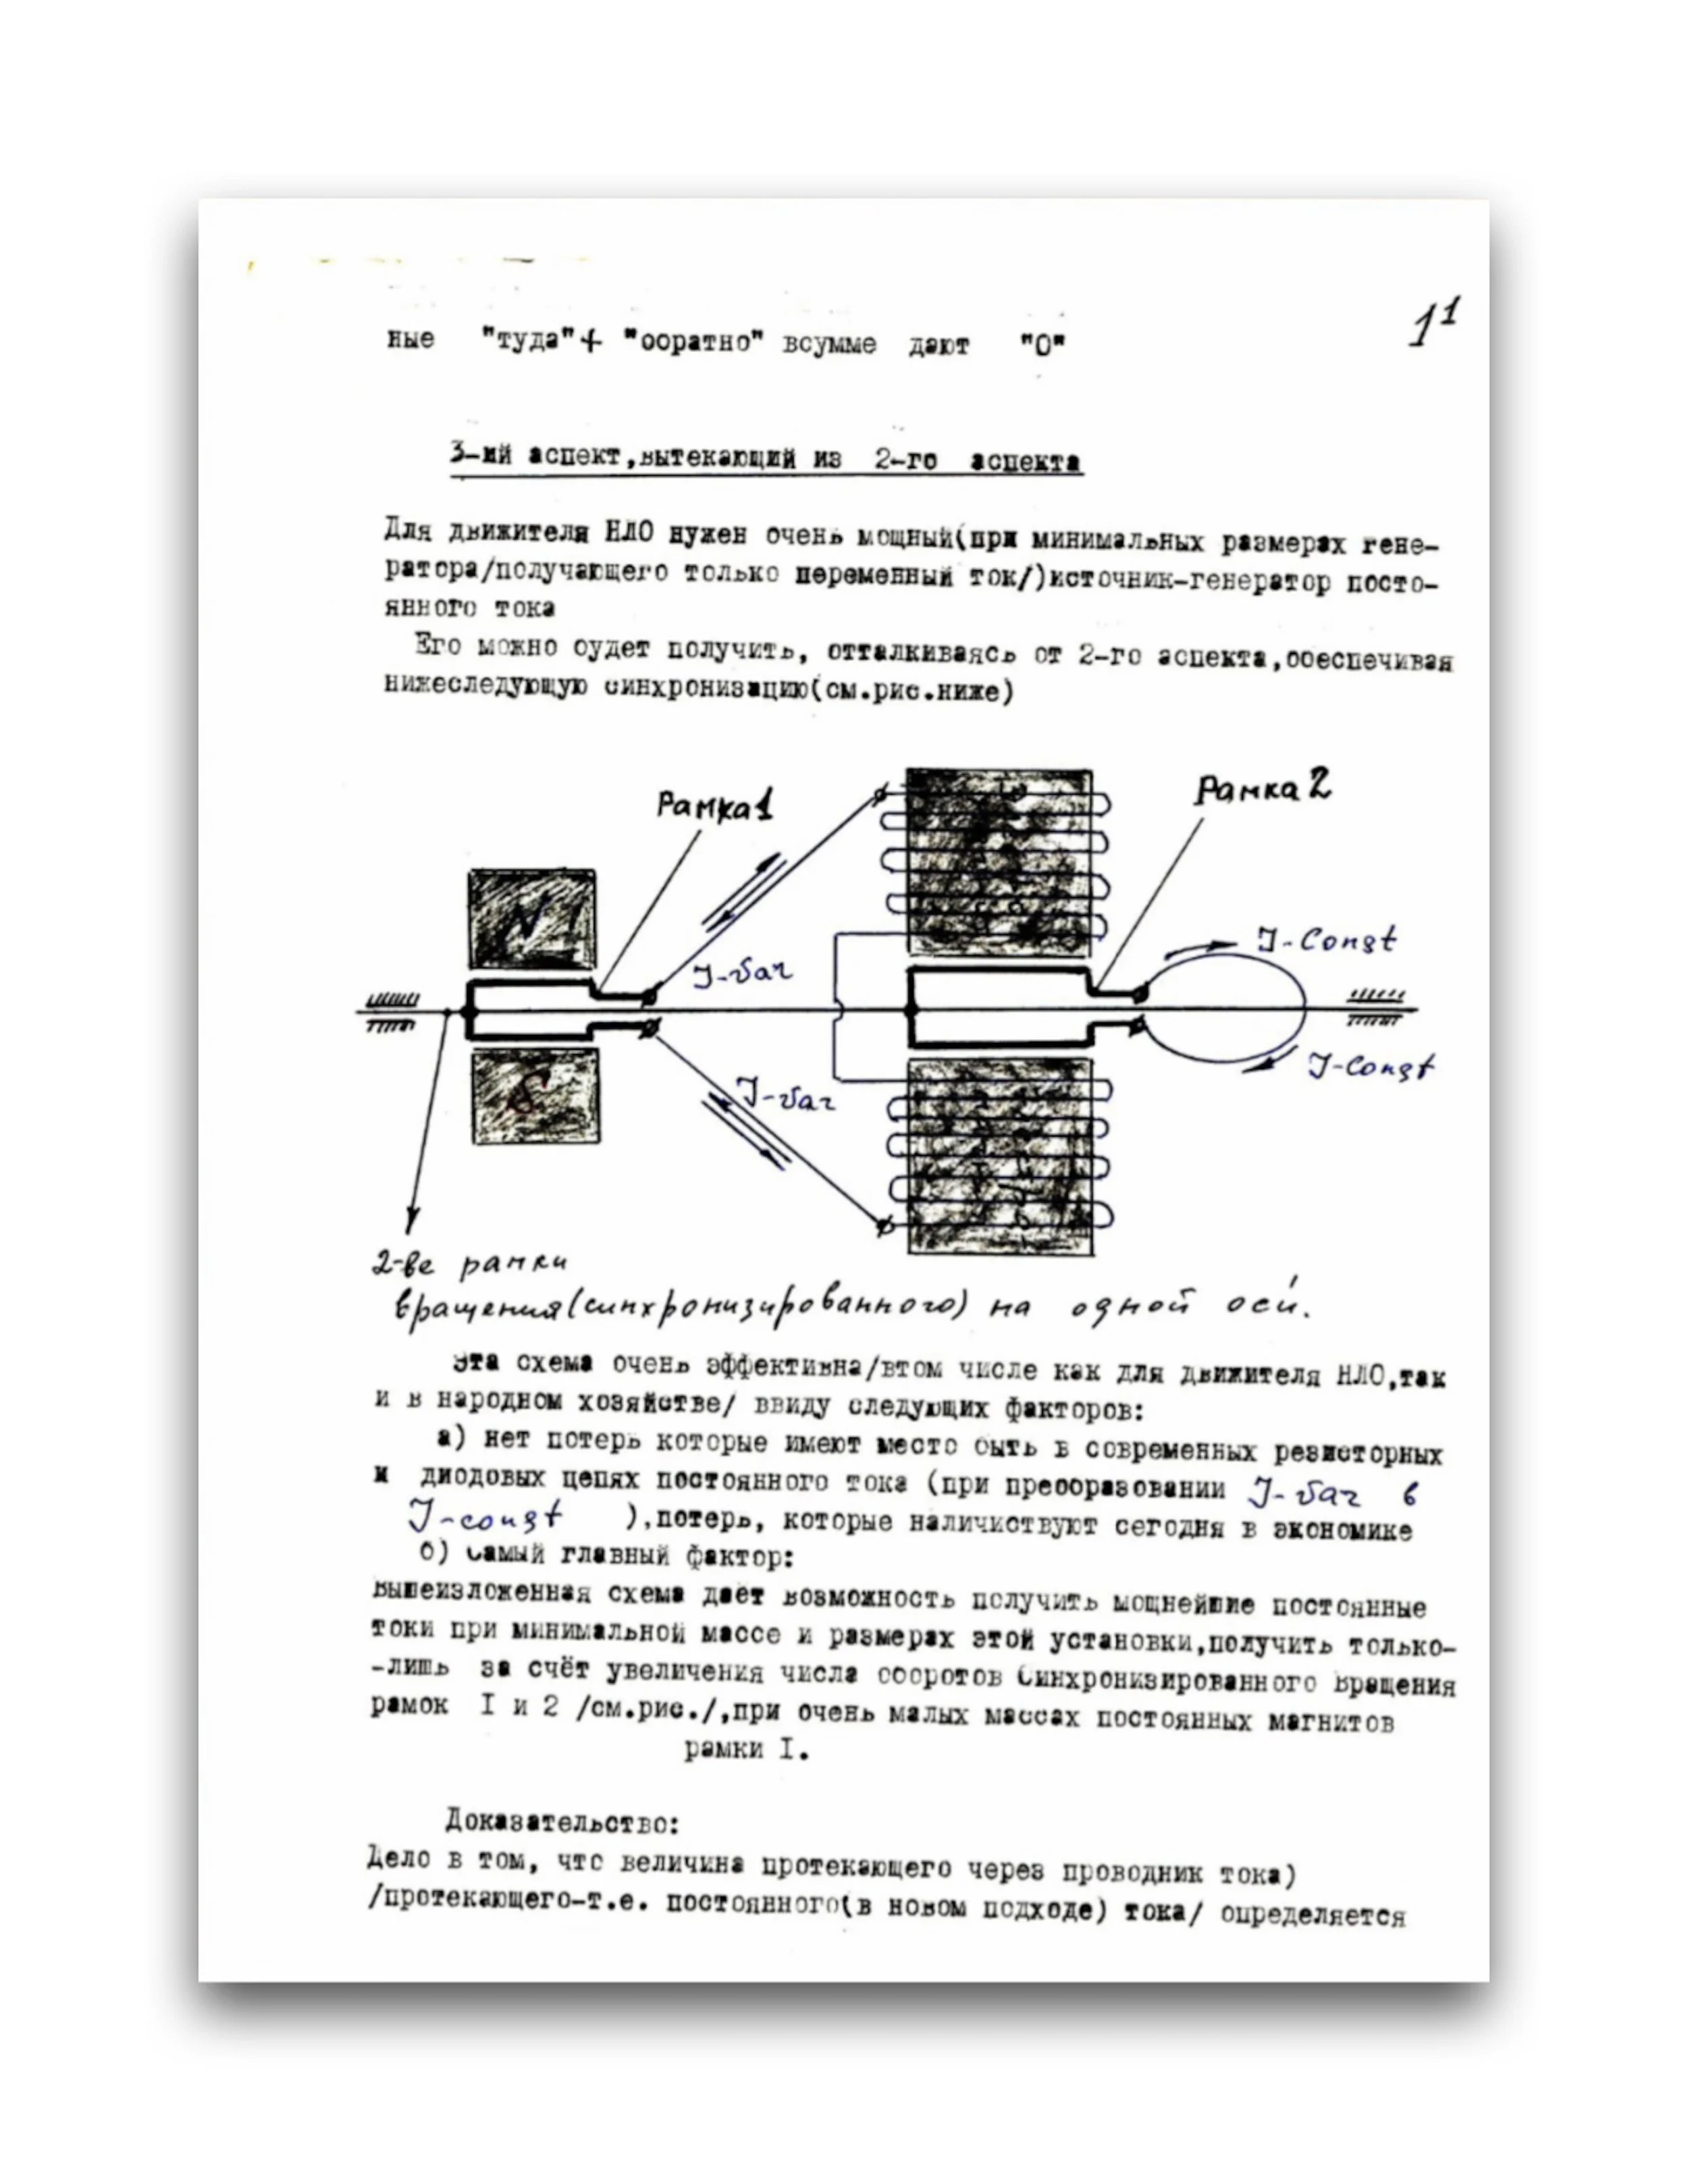 11
ные "туда"+ "обратно" всумме дают "0"
3-ий аспект,вытекающий из 2-го аспекта
Для движителя НЛО нужен очень мощный(при минимальных размерах гене-
ратора/получающего только переменный ток/)источник-генератор посто-
янного тока
Его можно будет получить, отталкиваясь от 2-го аспекта,обеспечивая
нижеследующую синхронизацию(см.рис.ниже)
Рамка 1
Рамка 2
N
S
J-var
J-var
J-Const
J-Const
2-ве рамки
вращения(синхронизированного) на одной оси.
Эта схема очень эффективна/втом числе как для движителя НЛО,так
и в народном хозяйстве/ ввиду следующих факторов:
а) нет потерь которые имеют место быть в современных резисторных
и диодовых цепях постоянного тока (при преобразовании J-var в
J-const ),потерь, которые наличиствуют сегодня в экономике
б) Самый главный фактор:
Вышеизложенная схема даёт возможность получить мощнейшие постоянные
токи при минимальной массе и размерах этой установки,получить только-
-лишь за счёт увеличения числа оборотов Синхронизированного Вращения
рамок I и 2 /см.рис./,при очень малых массах постоянных магнитов
рамки I.
Доказательство:
Дело в том, что величина протекающего через проводник тока)
/протекающего-т.е. постоянного(в новом подходе) тока/ определяется